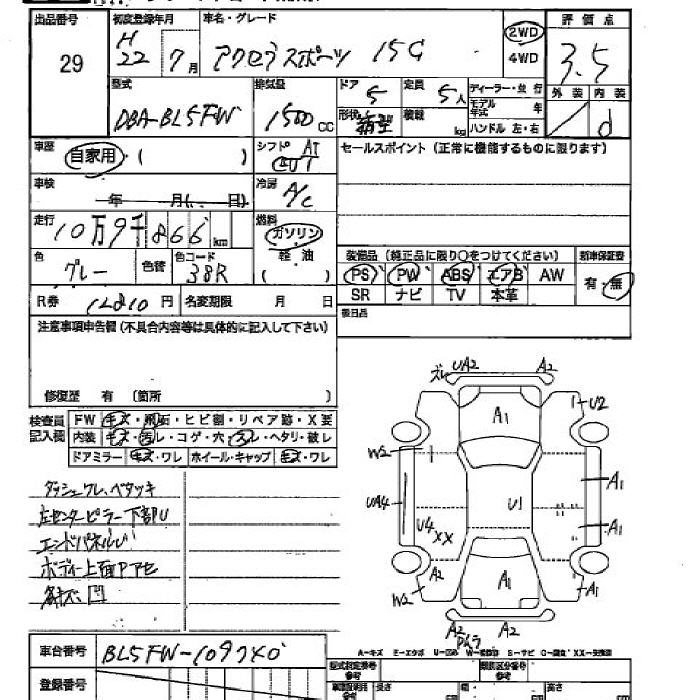 出品番号 初度登録年月 車名・グレード 評価点
29 H22 7月 アクセラスポーツ 15G 2WD 4WD 3.5
型式 排気量 ドア 定員 ディーラー・並行 外装 内装
DBA-BL5FW 1500cc 5 5人 モデル年式 年 d
形状 箱型 積載 kg ハンドル 左・右
車歴 自家用・( ) シフト AT セールスポイント(正常に機能するものに限ります)
車検 年 月(. . 日) 冷房 A/C
走行 10万9千866km 燃料 ガソリン
軽油 ( )
色 グレー 色替 色コード 38R
装備品(純正品に限り○をつけてください) 新車保証書
PS PW ABS エアB AW 有・無
SR ナビ TV 本革
R券 12810円 名変期限 月 日
後日品
注意事項申告欄(不具合内容等は具体的に記入して下さい)
修復歴 有 〔箇所 〕
検査員記入欄 FW キズ・飛石・ヒビ割・リペア跡・X要
内装 キズ・汚レ・コゲ・穴・スレ・ヘタリ・破レ
ドアミラー キズ・ワレ ホイール・キャップ キズ・ワレ
ズレ UA2 A2
A1 U2
W2 A1
UA4 U1
U4 XX A1
A2 A1 A1
W2
A2 A2
ダッシュワレ、ベタツキ
左センターピラー下部U
エンドパネルU
ボディー上面
車台番号 BL5FW-109740
登録番号
A-キズ E-エクボ U-凹み S-サビ C-腐食 XX-交換済
型式指定番号 参考 類別区分番号 参考
長さ 幅 高さ